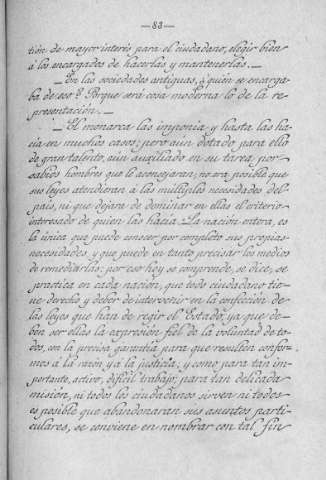 — 83 —
tión de mayor interés para el ciudadano, elegir bien
á los encargados de hacerlas y mantenerlas. —
— En las sociedades antiguas, ¿quién se encarga-
ba de eso? Porque será cosa moderna lo de la re-
presentación. —
— El monarca las imponía y hasta las ha-
cía en muchos casos; pero aun dotado para ello
de gran talento, aún auxiliado en su tarea por
sabios hombres que le aconsejaran, no era posible que
sus leyes atendieran á las múltiples necesidades del
país, ni que dejara de dominar en ellas el criterio
interesado de quien las hacía. La nación entera, es
la única que puede conocer por completo sus propias
necesidades y que puede en tanto precisar los medios
de remediarlas; por eso hoy se comprende, se dice, se
practica en cada nación, que todo ciudadano tie-
ne derecho y deber de intervenir en la confección de
las leyes que han de regir el Estado, ya que de-
ben ser ellas la expresión fiel de la voluntad de to-
dos, con la precisa garantía para que resulten confor-
mes á la razón y á la justicia; y como para tan im-
portante, activo, difícil trabajo, para tan delicada
misión, ni todos los ciudadanos sirven ni todos
es posible que abandonaran sus asuntos parti-
culares, se conviene en nombrar con tal fin